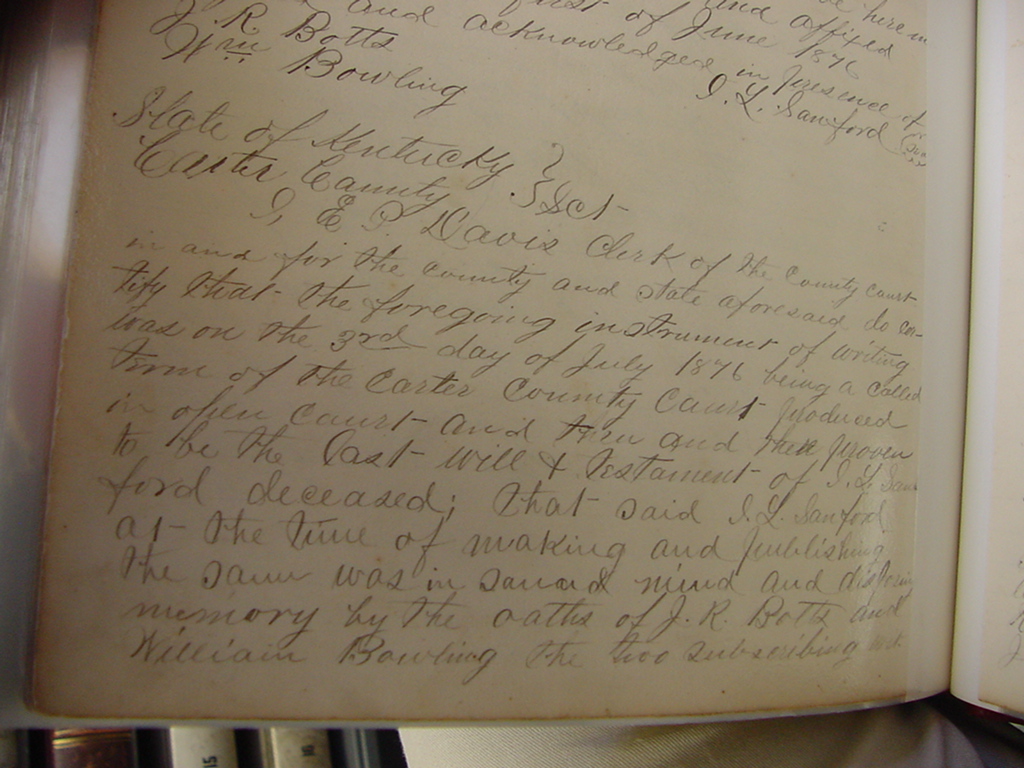 here
first of June 1876
and acknowledged in presence of
J. R. Botts
Wm Bowling
I. L. Sanford
State of Kentucky }
Carter County } Sct
I E P Davis Clerk of the County Court
in and for the county and state aforesaid do cer-
tify that the foregoing instrument of writing
was on the 3rd day of July 1876 being a called
term of the Carter County Court produced
in open court and then and then proven
to be the Last will & Testament of I. L. San
ford deceased; that said I. L. Sanford
at the time of making and publishing
the same was in sound mind and disposing
memory by the oaths of J. R. Botts and
William Bowling the two subscribing
15